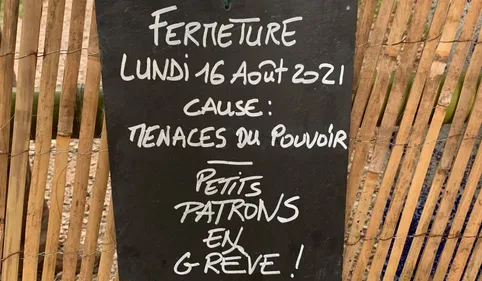 FERMETURE
LUNDI 16 Août 2021
CAUSE:
MENACES DU POUVOIR
PETITS
PATRONS
EN
GRÈVE!